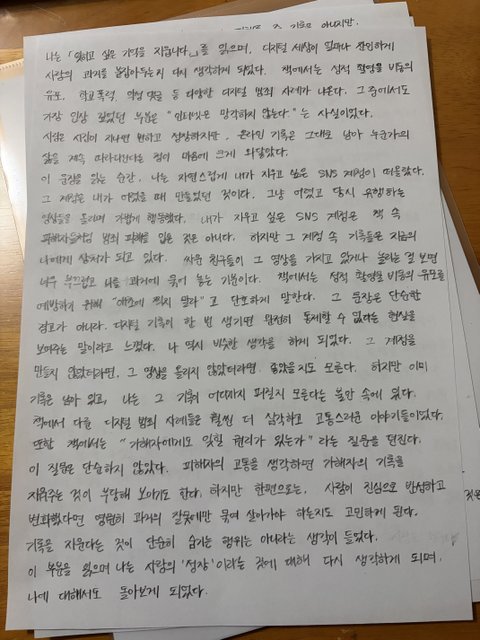 기록은 아니지만.
나는 「잊히고 싶은 기억을 지웁니다」를 읽으며, 디지털 세상이 얼마나 잔인하게
사람의 과거를 붙잡아두는지 다시 생각하게 되었다. 책에서는 성적 촬영물 비동의
유포, 학교 폭력, 악성 댓글 등 다양한 디지털 범죄 사례가 나온다. 그 중에서도
가장 인상 깊었던 부분은 "인터넷은 망각하지 않는다."는 사실이었다.
사람은 시간이 지나면 변하고 성장하지만, 온라인 기록은 그대로 남아 누군가의
삶을 계속 따라다닌다는 점이 마음에 크게 와닿았다.
이 문장을 읽는 순간, 나는 자연스럽게 내가 지우고 싶은 SNS 계정이 떠올랐다.
그 계정은 내가 어렸을 때 만들었던 것이다. 그냥 어렸고 당시 유행하는
영상들을 올리며 가볍게 행동했다. 내가 지우고 싶은 SNS 계정은 책 속
피해자들처럼 범죄 피해를 입은 것은 아니다. 하지만 그 계정 속 기록들은 지금의
나에게 상처가 되고 있다. 싸운 친구들이 그 영상을 가지고 있거나 놀리는 걸 보면
너무 부끄럽고 나를 과거에 묶어 놓는 기분이다. 책에서는 성적 촬영물 비동의 유포를
예방하기 위해 "애초에 찍지 말라"고 단호하게 말한다. 그 문장은 단순한
경고가 아니라, 디지털 기록이 한 번 생기면 완전히 통제할 수 없다는 현실을
보여주는 말이라고 느꼈다. 나 역시 비슷한 생각을 하게 되었다. 그 계정을
만들지 않았더라면, 그 영상을 올리지 않았더라면, 좋았을지도 모른다. 하지만 이미
기록은 남아 있고, 나는 그 기록이 어디까지 퍼질지 모른다는 불안 속에 있다.
책에서 다룬 디지털 범죄 사례들은 훨씬 더 심각하고 고통스러운 이야기들이었다.
또한 책에서는 "가해자에게도 잊힐 권리가 있는가"라는 질문을 던진다.
이 질문은 단순하지 않았다. 피해자의 고통을 생각하면 가해자의 기록을
지워주는 것이 부당해 보이기도 한다. 하지만 한편으로는, 사람이 진심으로 반성하고
변화했다면 영원히 과거의 잘못에만 묶여 살아가야 하는지도 고민하게 된다.
기록을 지운다는 것이 단순히 숨기는 행위는 아니라는 생각이 들었다.
이 부분을 읽으며 나는 사람의 '성장'이라는 것에 대해 다시 생각하게 되며,
나에 대해서도 돌아보게 되었다.